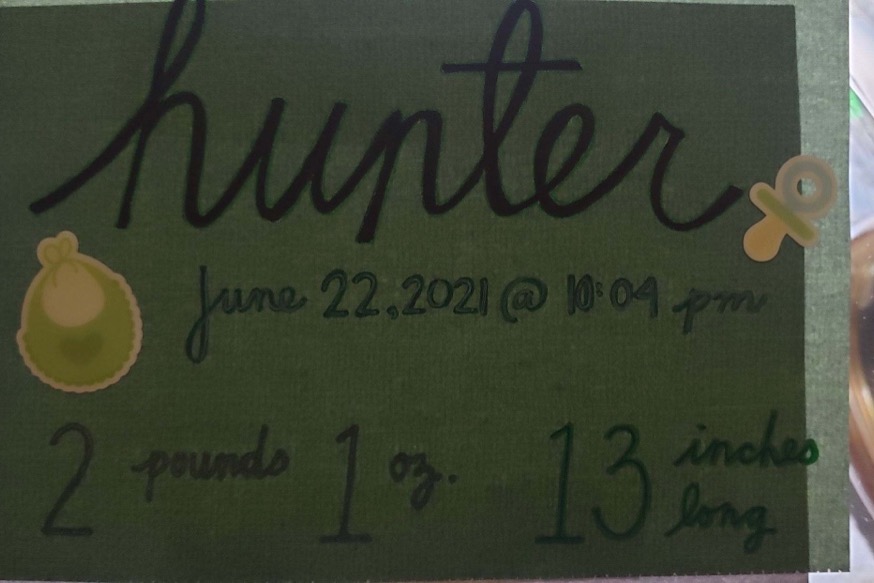 hunter
June 22, 2021 @ 10:04 pm
2 pounds 1 oz. 13 inches long